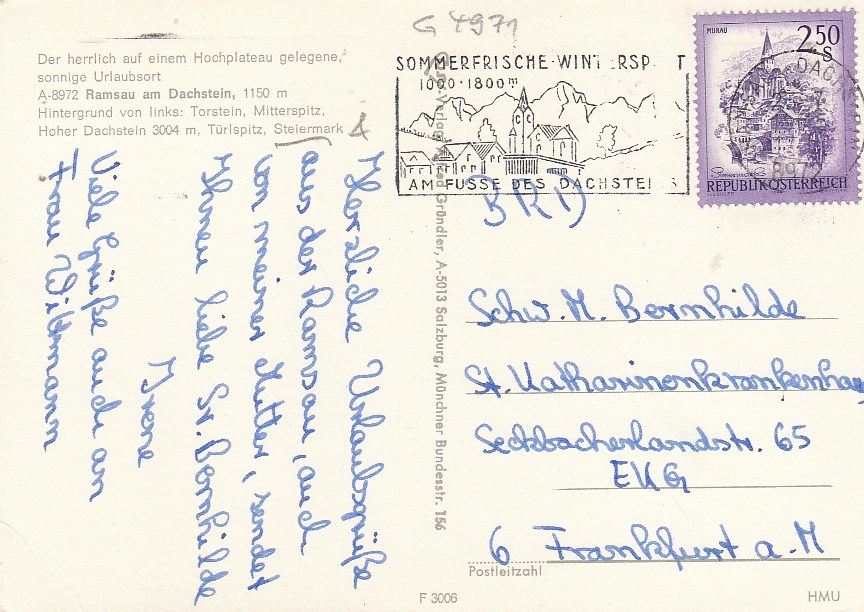 G 4971
Der herrlich auf einem Hochplateau gelegene,
sonnige Urlaubsort
A-8972 Ramsau am Dachstein, 1150 m
Hintergrund von links: Torstein, Mitterspitz,
Hoher Dachstein 3004 m, Türlspitz, Steiermark
Herzliche Urlaubsgrüße
aus der Ramsau, auch
von meiner Mutter, sendet
Ihnen liebe Sr. Bernhilde
Irene
Viele Grüße auch an
Frau Wittmann
SOMMERFRISCHE·WINT RSP T
1000·1800m
AM FUSSE DES DACHSTEI S
MURAU
2.50
S
REPUBLIK ÖSTERREICH
8972
Gründler, A-5013 Salzburg, Münchner Bundesstr. 156
BRD
Schw. M. Bernhilde
St. Katharinenkrankenhaus
Seckbacherlandstr. 65
EKG
6 Frankfurt a. M
Postleitzahl
F 3006
HMU